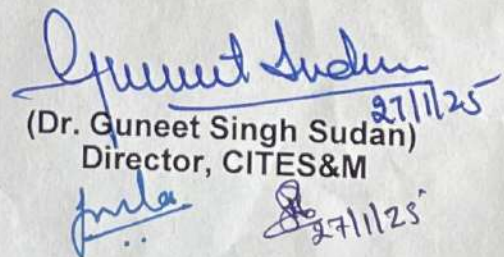 Guneet Sudan
27/1/25
(Dr. Guneet Singh Sudan)
Director, CITES&M
27/1/25